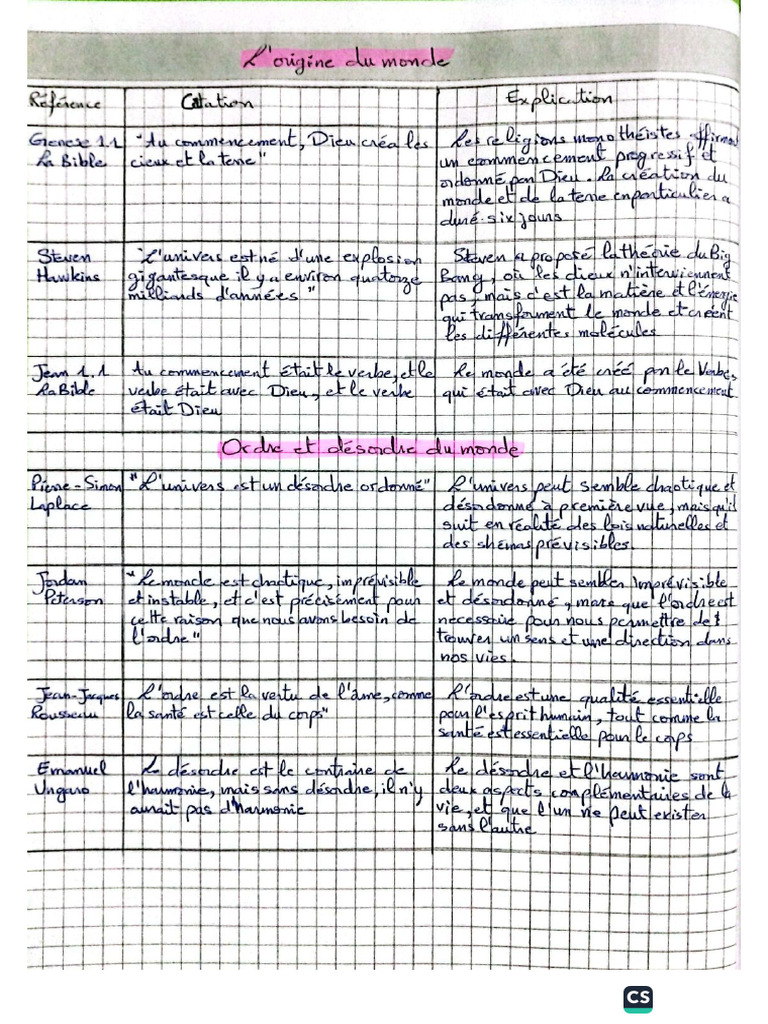 L'origine du monde
Référence Citation Explication
Genese 1.1
La Bible
"Au commencement, Dieu créa les
cieux et la terre"
Les religions monothéistes affirment
un commencement progressif et
ordonné par Dieu. La création du
monde et de la terre en particulier a
duré six jours
Steven
Hawkins
"L'univers est né d'une explosion
gigantesque il y a environ quatorze
milliards d'années"
Steven a proposé la théorie du Big
Bang, où les dieux n'interviennent
pas, mais c'est la matière et l'énergie
qui transforment le monde et créent
les différentes molécules
Jean 1.1
La Bible
Au commencement était le verbe, et le
verbe était avec Dieu, et le verbe
était Dieu
Le monde a été créé par le Verbe,
qui était avec Dieu au commencement
Ordre et désordre du monde
Pierre-Simon
Laplace
"L'univers est un désordre ordonné"
L'univers peut semble chaotique et
désordonné à première vue, mais qu'il
suit en réalité des lois naturelles et
des shémas prévisibles.
Jordan
Peterson
"Le monde est chaotique, imprévisible
et instable, et c'est précisément pour
cette raison que nous avons besoin de
l'ordre"
Le monde peut sembler imprévisible
et désordonné, mais que l'ordre est
necessaire pour nous permettre de
trouver un sens et une direction dans
nos vies.
Jean-Jacques
Rousseau
"L'ordre est la vertu de l'âme, comme
la santé est celle du corps"
L'ordre est une qualité essentielle
pour l'esprit humain, tout comme la
santé est essentielle pour le corps
Emanuel
Ungaro
Le désordre est le contraire de
l'harmonie, mais sans désordre, il n'y
aurait pas d'harmonie
Le désordre et l'harmonie sont
deux aspects complémentaires de la
vie, et que l'un ne peut exister
sans l'autre
CS